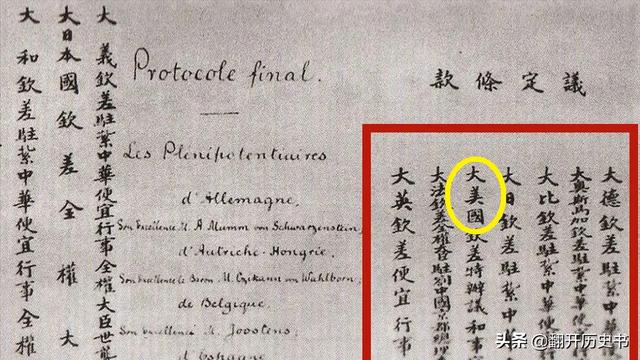 議定條款
大德欽差駐紮中華便宜
大奧斯馬加欽差駐紮中華便
大比欽差駐紮中華便
大日欽差駐紮中
大美國欽差特辦議和事
大法欽差全權駐中國京都
大英欽差便宜行事
Protocole final.
Les Plénipotentiaires
d'Allemagne,
Son Excellence M. A. Mumm von Schwarzenstein,
d'Autriche-Hongrie,
Son Excellence le Baron M. Czikann von Wahlborn;
de Belgique,
Son Excellence M. Joostens;
d'Espagne
大義欽差駐紮中華便宜行事全權大臣世襲
大日本國欽差全權大
大和欽差駐紮中華便宜行事全權
头条 @翻开历史书